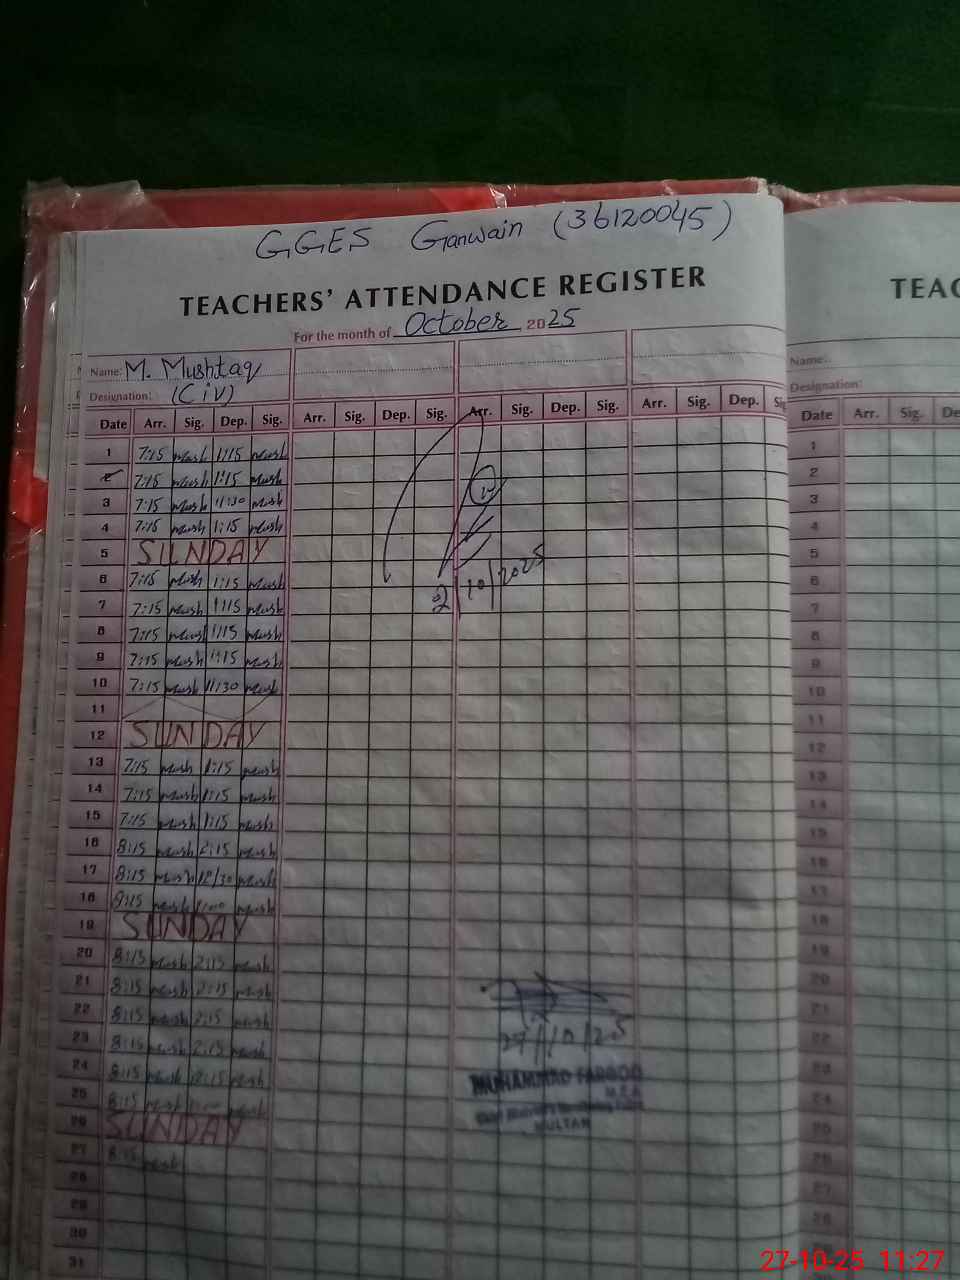 GGES Ganwain (36120045)
TEACHERS' ATTENDANCE REGISTER
TEAC
For the month of October 2025
Name: M. Mushtaq
Name:
Designation: (Civ)
Designation:
Date Arr. Sig. Dep. Sig. Arr. Sig. Dep. Sig. Arr. Sig. Dep. Sig. Arr. Sig. Dep. Sig
Date Arr. Sig. De
1 7:15 Mush 1:15 Mush
2 7:15 Mush 1:15 Mush
3 7:15 Mush 11:30 Mush
4 7:15 Mush 1:15 Mush
5 SUNDAY
6 7:15 Mush 1:15 Mush
2/10/2025
7 7:15 Mush 1:15 Mush
8 7:15 Mush 1:15 Mush
9 7:15 Mush 1:15 Mush
10 7:15 Mush 11:30 Mush
11
12 SUNDAY
13 7:15 Mush 1:15 Mush
14 7:15 Mush 1:15 Mush
15 7:15 Mush 1:15 Mush
16 8:15 Mush 2:15 Mush
17 8:15 Mush 12/30 Mush
18 8:15 Mush Mush
19 SUNDAY
20 8:15 Mush 2:15 Mush
21 8:15 Mush 2:15 Mush
22 8:15 Mush 2:15 Mush
23 8:15 Mush 2:15 Mush
27/10/25
24 8:15 Mush 12:15 Mush
MUHAMMAD FAROOQ
M.E.A
25 8:15 Mush Mush
MULTAN
26 SUNDAY
27 8:15 Mush
28
29
30
31
1
2
3
4
5
6
7
8
9
10
11
12
13
14
15
16
17
18
19
20
21
22
23
24
25
26
27
28
27-10-25 11:27